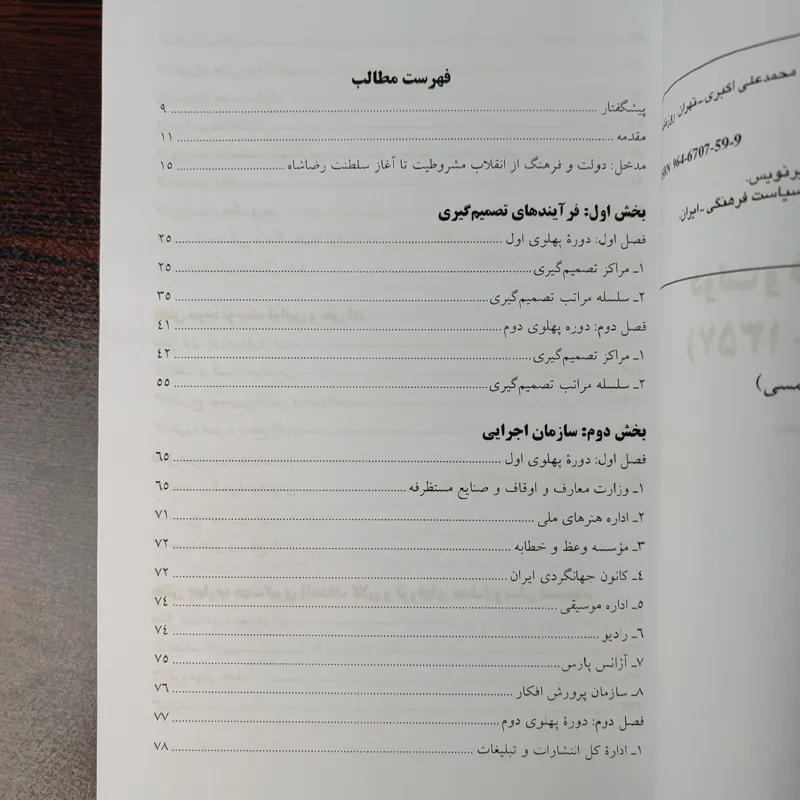 محمدعلی اکبری ـ تهران:
964-6707-59-9
سیاست فرهنگی ـ ایران.
۱۳۵۷)
فهرست مطالب
پیشگفتار ........ ۹
مقدمه ........ ۱۱
مدخل: دولت و فرهنگ از انقلاب مشروطیت تا آغاز سلطنت رضاشاه ........ ۱۵
بخش اول: فرآیندهای تصمیم‌گیری
فصل اول: دورهٔ پهلوی اول ........ ۲۵
۱ـ مراکز تصمیم‌گیری ........ ۲۵
۲ـ سلسله مراتب تصمیم‌گیری ........ ۳۵
فصل دوم: دوره پهلوی دوم ........ ۴۱
۱ـ مراکز تصمیم‌گیری ........ ۴۲
۲ـ سلسله مراتب تصمیم‌گیری ........ ۵۵
بخش دوم: سازمان اجرایی
فصل اول: دورهٔ پهلوی اول ........ ۶۵
۱ـ وزارت معارف و اوقاف و صنایع مستظرفه ........ ۶۵
۲ـ اداره هنرهای ملی ........ ۷۱
۳ـ مؤسسه وعظ و خطابه ........ ۷۲
۴ـ کانون جهانگردی ایران ........ ۷۲
۵ـ اداره موسیقی ........ ۷۴
۶ـ رادیو ........ ۷۴
۷ـ آژانس پارس ........ ۷۵
۸ـ سازمان پرورش افکار ........ ۷۶
فصل دوم: دورهٔ پهلوی دوم ........ ۷۷
۱ـ ادارهٔ کل انتشارات و تبلیغات ........ ۷۸